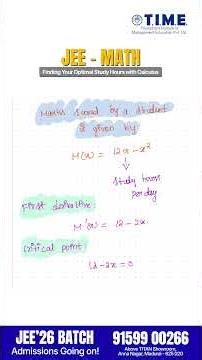 T.I.M.E.
JEE - MATH
Finding Your Optimal Study Hours with Calculus
Marks Scored by a student
is given by
M(x) = 12x - x²
Study hours
per day
First derivative:
M'(x) = 12 - 2x
Critical point
12 - 2x = 0
JEE'26 BATCH
Admissions Going on!
91599 00266
Above TITAN Showroom,
Anna Nagar, Madurai - 625 020